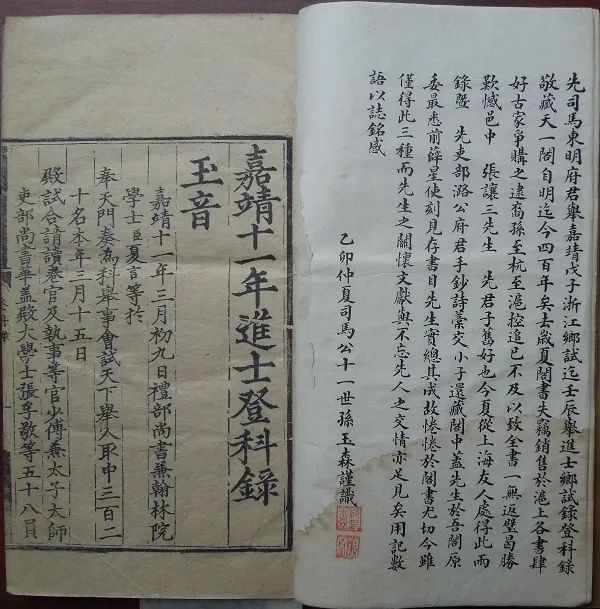 先司馬東明府君舉嘉靖戊子浙江鄉試迄壬辰舉進士鄉試錄登科錄
敬藏天一閣自明迄今四百年矣去歲夏閣書失竊銷售於滬上各書肆
好古家爭購之逮裔孫至杭至滬控追已不及以致全書一無返璧曷勝
歎憾邑中 張讓三先生 先君子舊好也今夏從上海友人處得此兩
錄暨 先吏部潞公府君手鈔詩藁交小子還藏閣中蓋先生於吾閣原
委最悉前薛星使刻見存書目先生實總其成故惓惓於閣書尤切今雖
僅得此三種而先生之關懷文獻與不忘先人之交情亦足見矣用記數
語以誌銘感
乙卯仲夏司馬公十一世孫玉森謹識
嘉靖十一年進士登科錄
玉音
嘉靖十一年三月初九日禮部尚書兼翰林院
學士臣夏言等於
奉天門奏為科舉事會試天下舉人取中三百二
十名本年三月十五日
殿試合請讀卷官及執事等官少傅兼太子太師
吏部尚書華蓋殿大學士張孚敬等五十八員